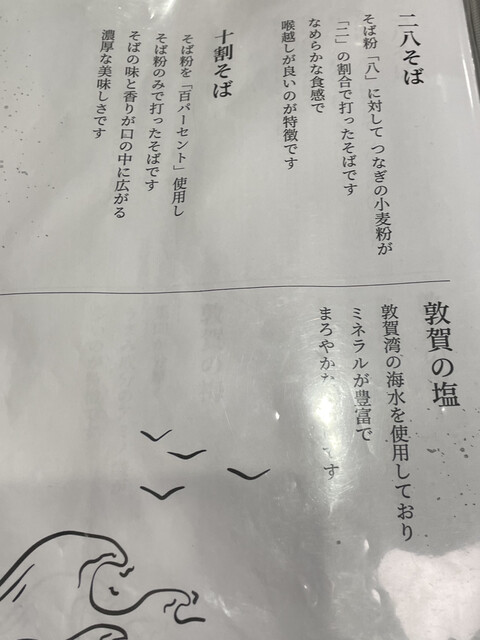 二八そば
そば粉「八」に対して つなぎの小麦粉が
「二」の割合で打ったそばです
なめらかな食感で
喉越しが良いのが特徴です
十割そば
そば粉を「百パーセント」使用し
そば粉のみで打ったそばです
そばの味と香りが口の中に広がる
濃厚な美味しさです
敦賀の塩
敦賀湾の海水を使用しており
ミネラルが豊富で
まろやかな です